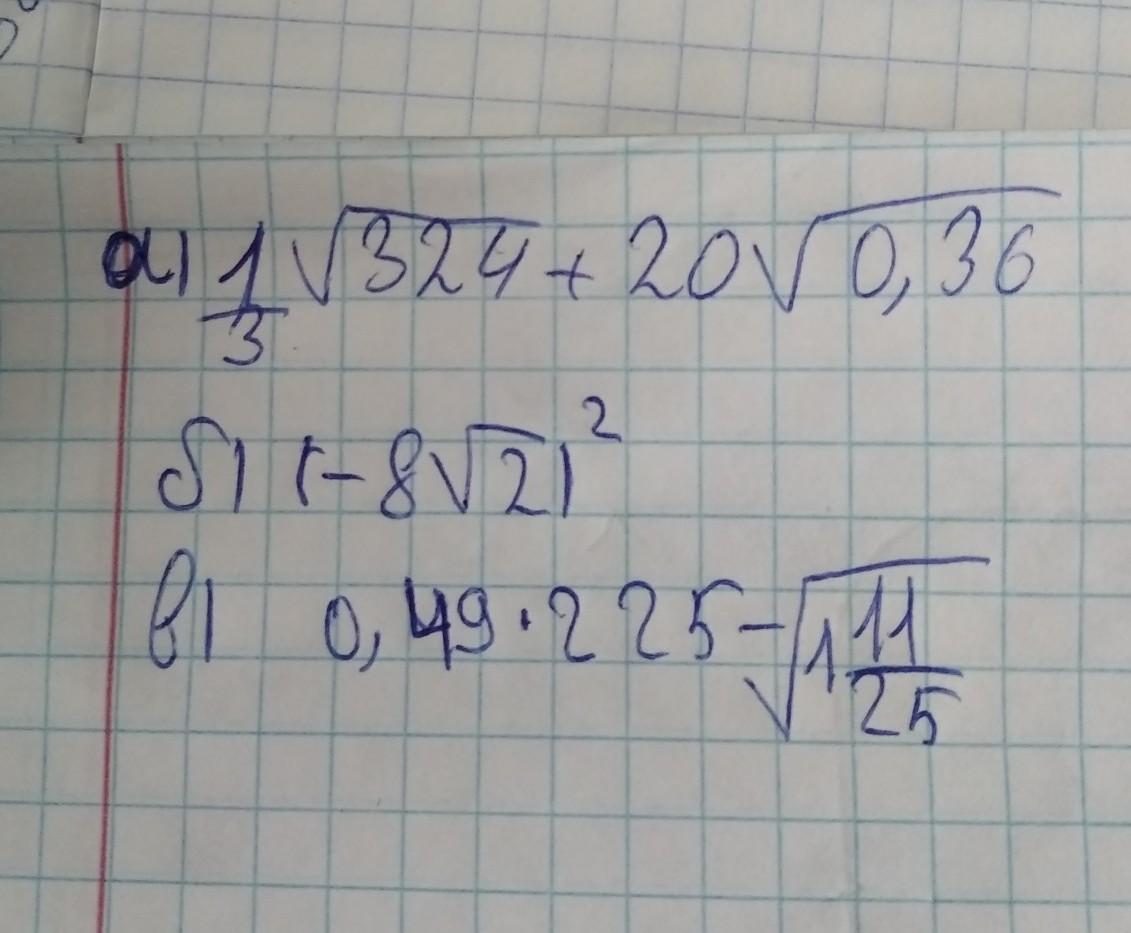 а) 1/3 √324 + 20√0,36
б) (-8√2)²
в) 0,49·225-√1 11/25